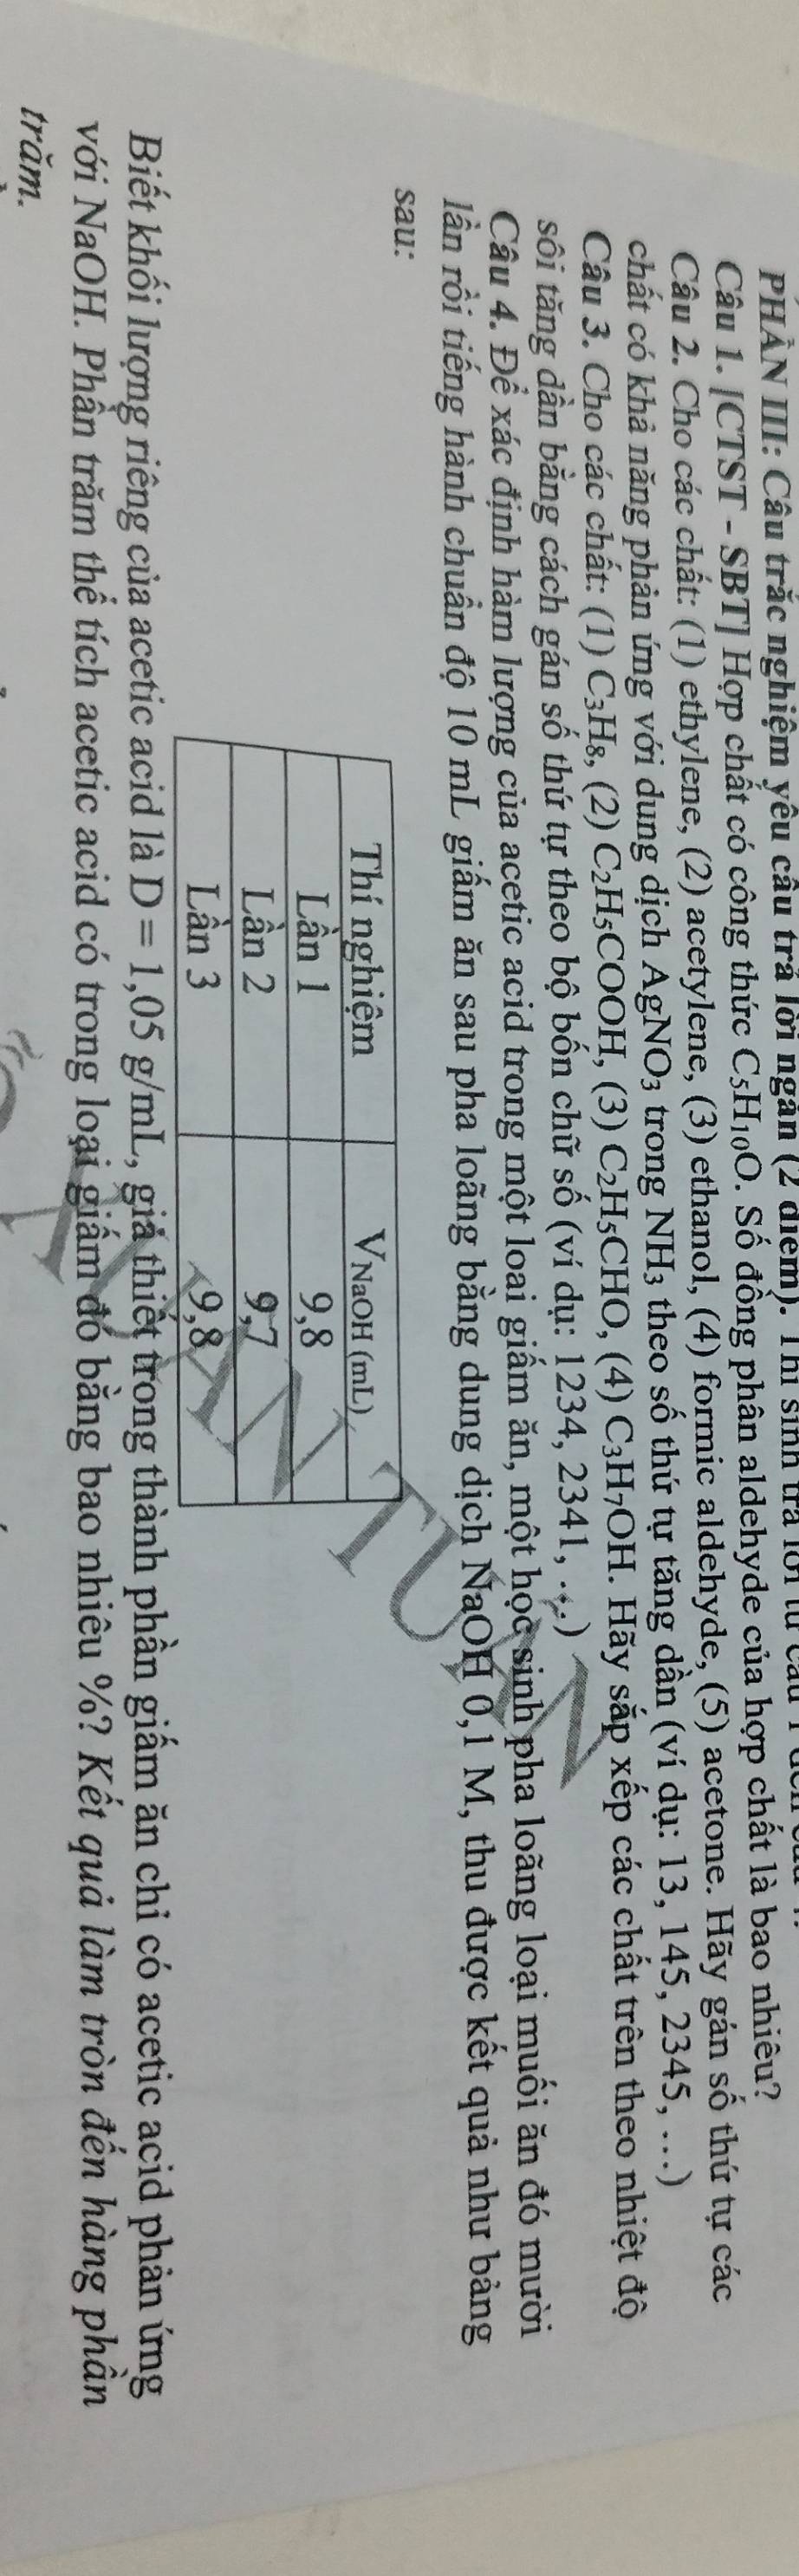 PHẦN III: Câu trắc nghiệm yêu cầu trả lời ngắn (2 điểm). Thí sinh trả lời từ câu 1 đến câu
Câu 1. [CTST - SBT] Hợp chất có công thức C₅H₁₀O. Số đồng phân aldehyde của hợp chất là bao nhiêu?
Câu 2. Cho các chất: (1) ethylene, (2) acetylene, (3) ethanol, (4) formic aldehyde, (5) acetone. Hãy gán số thứ tự các
chất có khả năng phản ứng với dung dịch AgNO₃ trong NH₃ theo số thứ tự tăng dần (ví dụ: 13, 145, 2345, …)
Câu 3. Cho các chất: (1) C₃H₈, (2) C₂H₅COOH, (3) C₂H₅CHO, (4) C₃H₇OH. Hãy sắp xếp các chất trên theo nhiệt độ
sôi tăng dần bằng cách gán số thứ tự theo bộ bốn chữ số (ví dụ: 1234, 2341, …)
Câu 4. Để xác định hàm lượng của acetic acid trong một loai giấm ăn, một học sinh pha loãng loại muối ăn đó mười
lần rồi tiếng hành chuẩn độ 10 mL giấm ăn sau pha loãng bằng dung dịch NaOH 0,1 M, thu được kết quả như bảng
sau:
Thí nghiệm V NaOH (mL)
Lần 1 9,8
Lần 2 9,7
Lần 3 9,8
Biết khối lượng riêng của acetic acid là D = 1,05 g/mL, giả thiết trong thành phần giấm ăn chỉ có acetic acid phản ứng
với NaOH. Phần trăm thể tích acetic acid có trong loại giấm đó bằng bao nhiêu %? Kết quả làm tròn đến hàng phần
trăm.